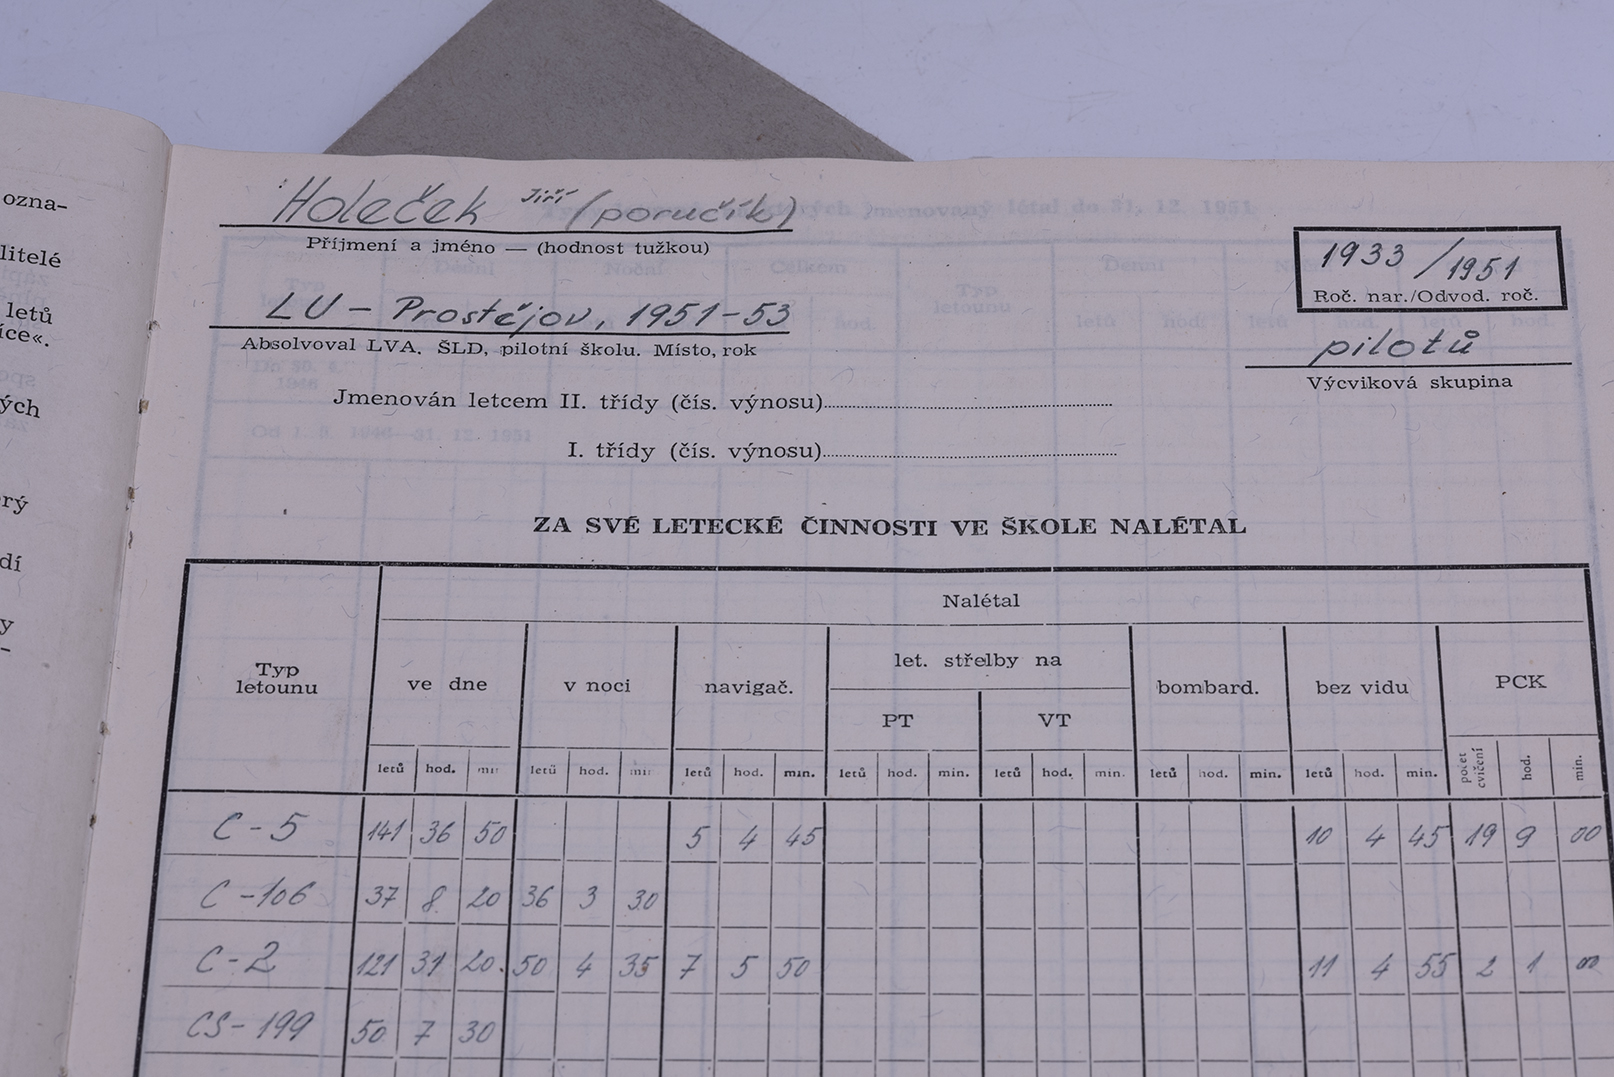 ozna-
litelé
letů
íce«.
ých
erý
dí
y
-
Holeček Jiří (poručík)
Příjmení a jméno — (hodnost tužkou)
1933/1951
Roč. nar./Odvod. roč.
LU - Prostějov, 1951-53
Absolvoval LVA. ŠLD, pilotní školu. Místo, rok
pilotů
Výcviková skupina
Jmenován letcem II. třídy (čís. výnosu)
I. třídy (čís. výnosu)
ZA SVÉ LETECKÉ ČINNOSTI VE ŠKOLE NALÉTAL
Nalétal
Typ letounu
ve dne v noci navigač. let. střelby na bombard. bez vidu PCK
PT VT
letů hod. min letů hod. min letů hod. min. letů hod. min. letů hod. min. letů hod. min. letů hod. min. počet cvičení hod. min.
C-5 141 36 50 5 4 45 10 4 45 19 9 00
C-106 37 8 20 36 3 30
C-2 121 31 20 50 4 35 7 5 50 11 4 55 2 1 00
CS-199 50 7 30
Typy letounů, na kterých jmenovaný létal do 31. 12. 1951
Denní Noční Celkem
Od 1. 5. 1946—31. 12. 1951